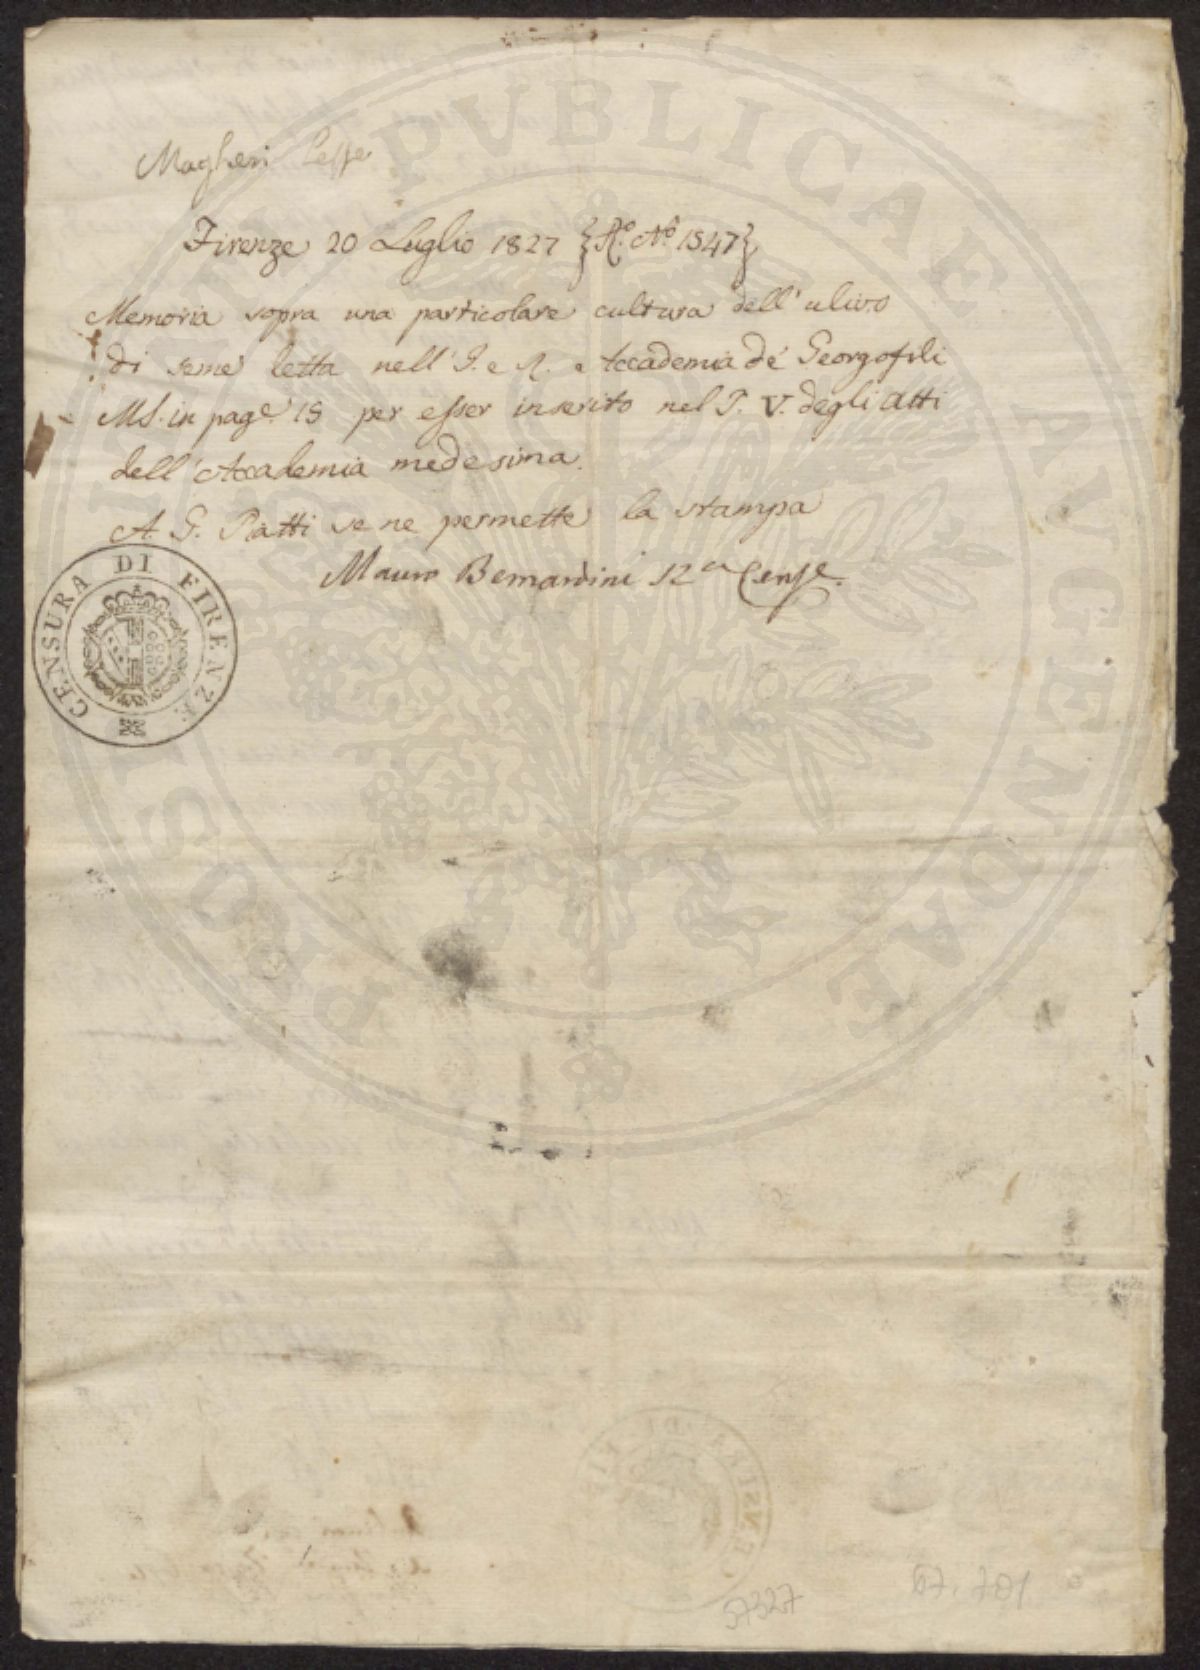 Magheri Lesse
Firenze 20 Luglio 1827 {Ro. No. 1547}
Memoria sopra una particolare cultura dell'ulivo
di seme letta nell'I. e R. Accademia de' Georgofili
MS. in page. 15 per esser inserito nel T. V. degli Atti
dell'Accademia medesima.
A. G. Piatti se ne permette la stampa
Mauro Bernardini 12 en Cense.
CENSURA DI FIRENZE
PROSPERITATI PVBLICAE AVGENDAE
57327
67.701